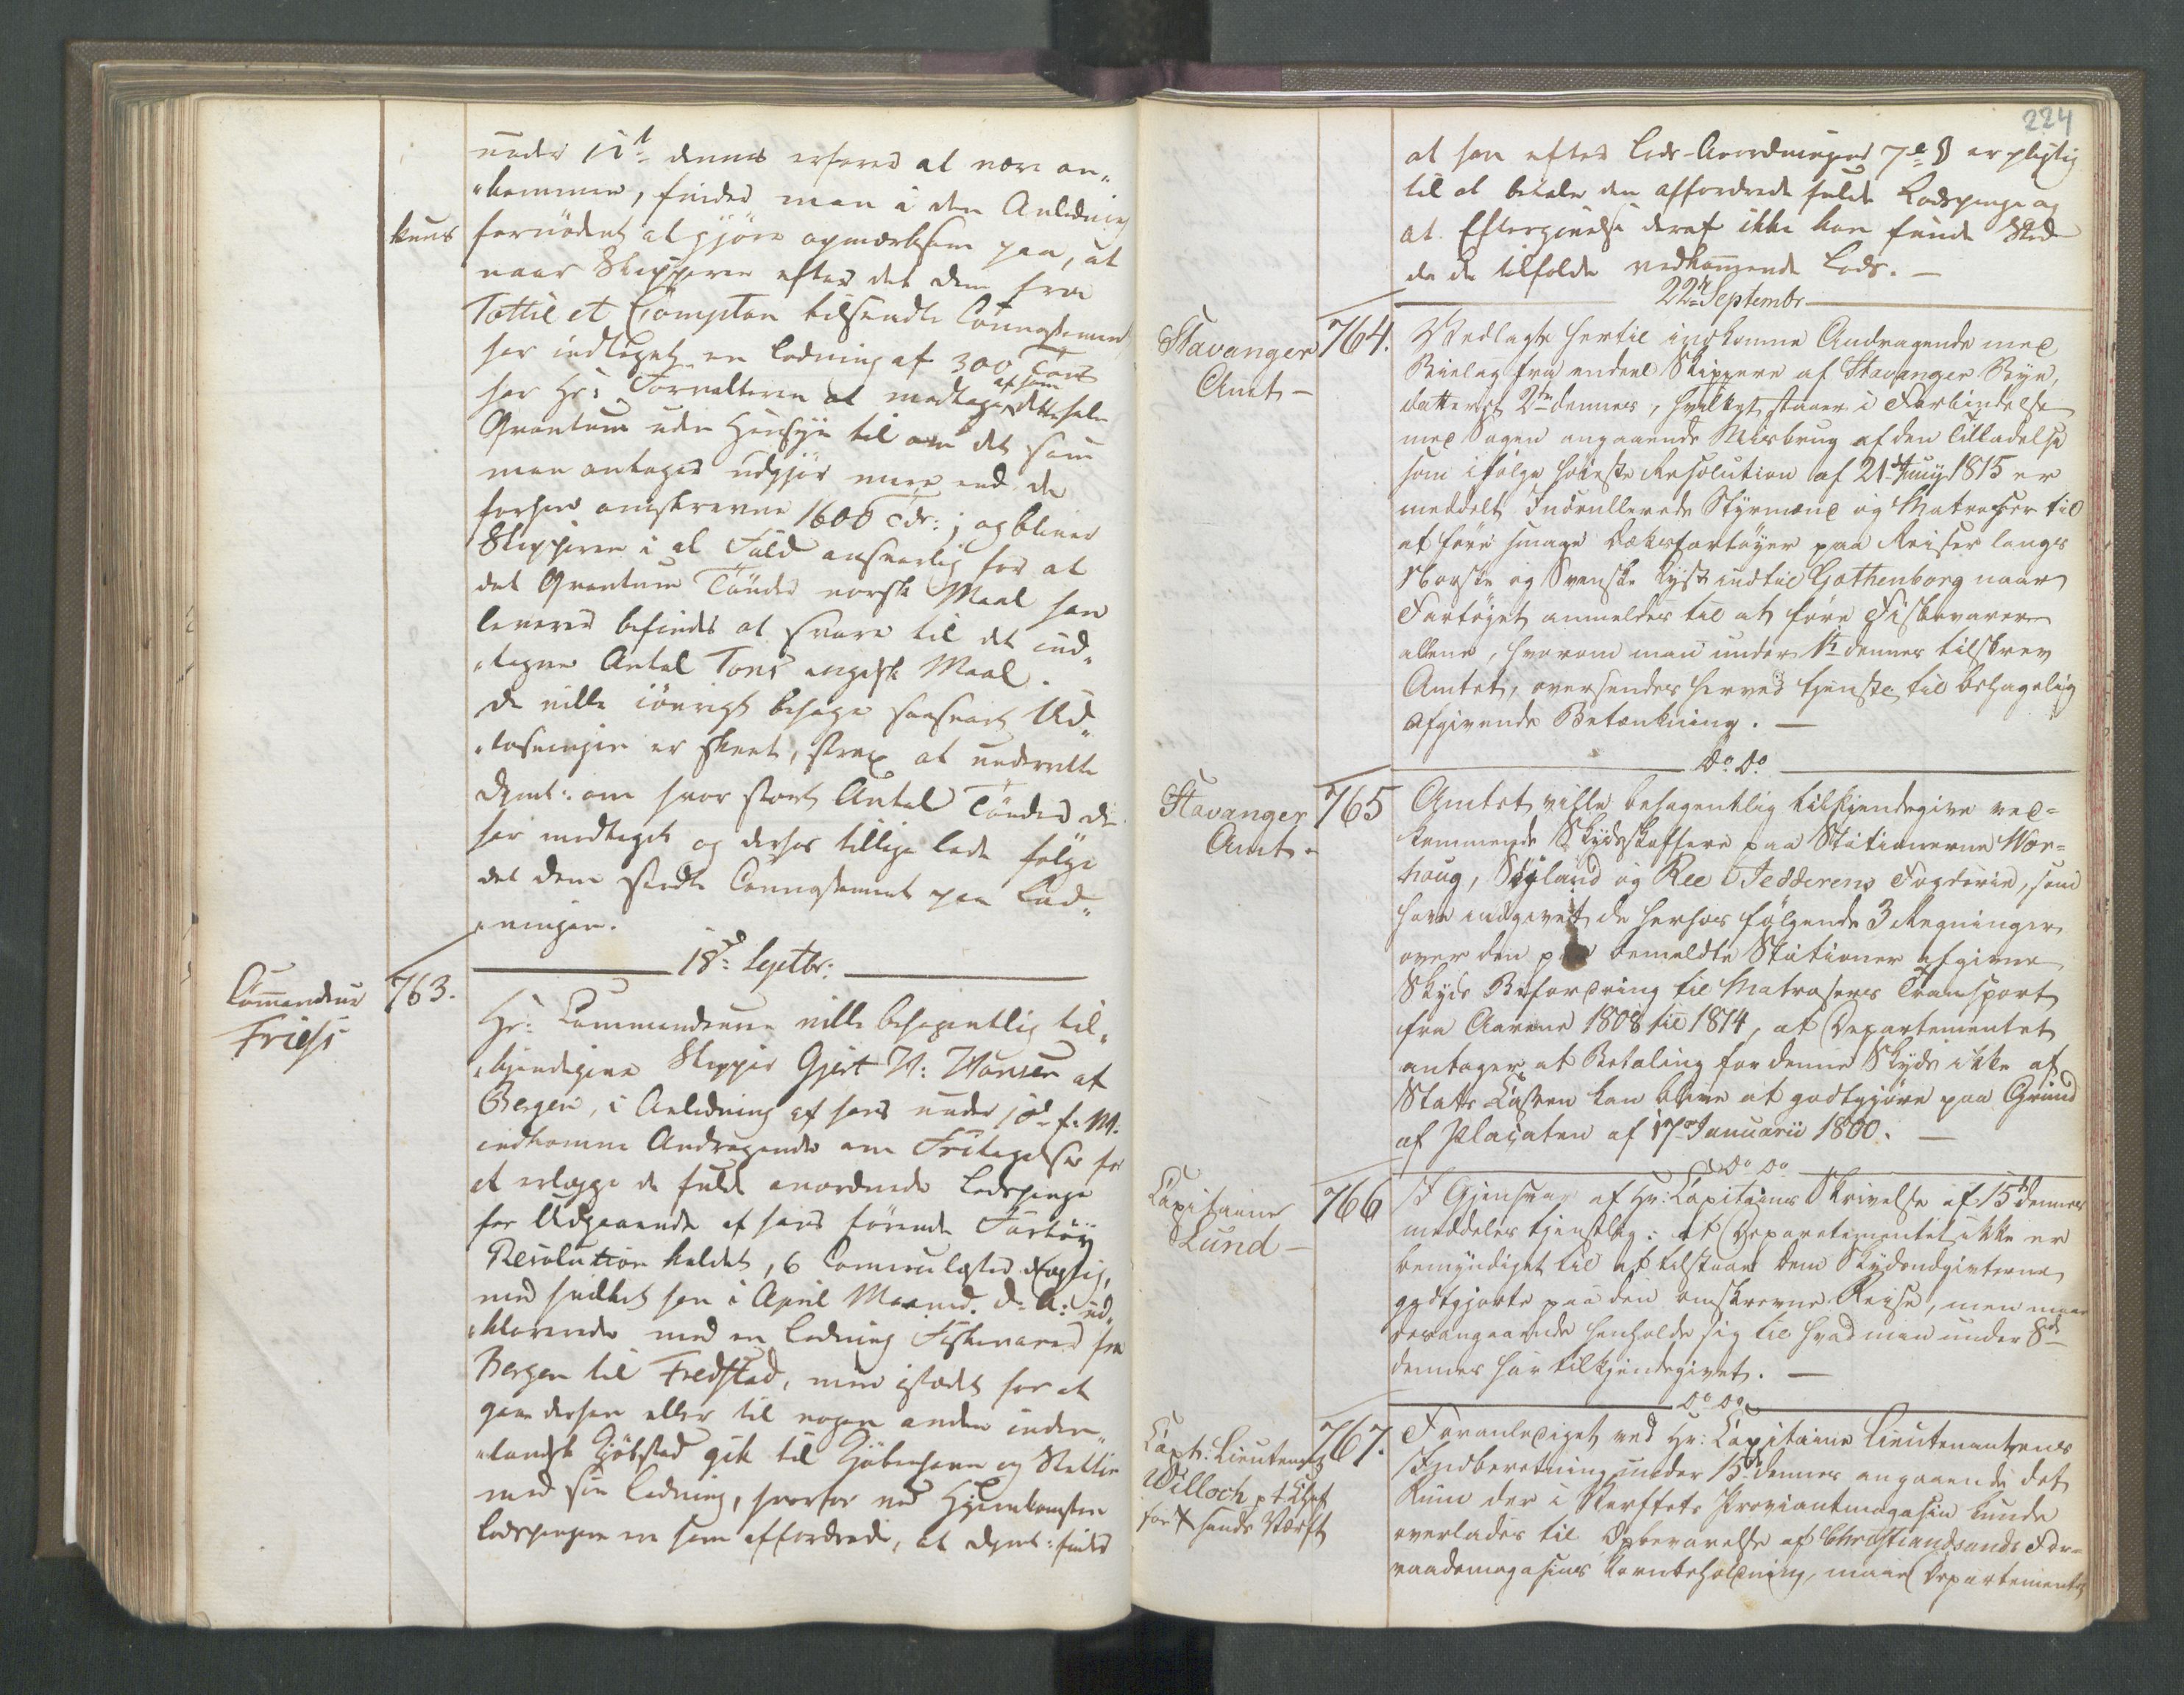 under 11t dennes erfares at være an„
„kommen, finder man i den Anledning
kuns
fornødent at gjøre opmærksom paa, at
naar Skipperen efter det dem fra
Tottie et Compton tilsendte Connossement
har indtaget en Ladning af 300 Tons
har Hr: Forvalteren at modtage af ham dette hele
Qvantum uden Hensyn til om det som
man antager udgjør mere end de
forhen omskrevne 1600 Tdr: ; og bliver
Skipperen i al Fald ansvarlig for at
det Qvantum Tønder norsk Maal han
leverer befindes at svare til det ind„
„tagne Antal Tons engelsk Maal.
De ville iøvrigt behage saasnart Ud„
„losningen er skeet, strax at underrette
Dpmt: om hvor stort Antal Tønder De
har modtaget og derhos tillige lade følge
det dem sendte Connossement paa Lad„
„ningen.
18de Septbr:
Commandeur
Friese
763.
Hr: Commandeuren ville behagentlig til„
„kjendegive Skipper Gjert H: Hansen af
Bergen, i Anledning af hans under 10d f. M.
indkomne Andragende om Fritagelse for
at erlægge de fulde anordnede Lodspenge
for Udgaaende af hans førende Fartøy
Resolution kaldet, 6 Commerzlæster drægtig,
med hvilket han i April Maaned d: A: ud„
„klarerede med en Ladning Fiskevarer fra
Bergen til Fredstad, men istædet for at
gaae derhen eller til nogen anden inden„
„landsk Kjøbstad gik til Kjøbenhavn og Stettin
med sin Ladning, hvorfor ved Hjemkomsten
Lodspengene ere ham affordrede, at Dpmt: finder
224
at han efter Lods-Anordningens 7de § er pligtig
til at betale den affordrede fulde Lodspenge og
at Eftergivelse deraf ikke kan finde Sted
da de tilfalde vedkommende Lods. —
22de Septembr
Stavanger
Amt –
764.
Vedlagte hertil indkomne Andragende med
Bielag fra endeel Skippere af Stavanger Bye,
dateret 2den dennes, hvilket staaer i Forbindelse
med Sagen angaaende Misbrug af den Tilladelse
som ifølge høieste Resolution af 21de Juny 1815 er
meddelt Indrullerede Styrmænd og Matroser til
at føre smaae Dæksfartøyer paa Reiser langs
Norske og Svenske Kyst indtil Gothenborg naar
Fartøyet anmeldes til at føre Fiskevarer
allene, hvorom man under 1ste dennes tilskrev
Amtet, oversendes herved tjenstl. til behagelig
afgivende Betænkning. —
Do. Do.
Stavanger
Amt.
765
Amtet ville behagentlig tilkjendegive ved=
kommende Skydsskaffere paa Stationerne War=
houg, Sigland og Ree i Jedderens Fogderie, som
have indgivet de herhos følgende 3 Regninger
over den paa bemeldte Stationer afgivne
Skyds Befordring til Matrosers Transport
fra Aarene 1808 til 1814, at Departementet
antager at Betaling for denne Skyds ikke af
Stats Cassen kan blive at godtgjøre paa Grund
af Placaten af 17de Januarii 1800. —
Do Do
Capitaine
Lund –
766
I Gjensvar af Hr: Capitainens Skrivelse af 15de dennes
meddeles tjenstlig: at Departementet ikke er
bemyndiget til at tilstaae Dem Skydsudgivterne
godtgjorte paa den omskrevne Reise, men maae
desangaaende henholde sig til hvad man under 8de
dennes har tilkjendegivet. —
Do Do
Capt: Lieutenant
Willoch p.t. Chef
for Xsands Værft
767.
Foranlediget ved Hr: Capitaine Lieutenantens
Indberetning under 15de dennes angaaende det
Rum der i Værftets Proviantmagasin kunde
overlades til Opbevarelse af Christiandsands For=
raadsmagasins Kornbeholdning, maae Departementet